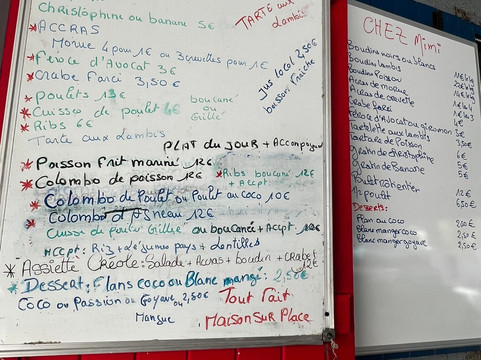 Christophine ou banane 5€
TARTE aux Lambis
*ACCRAS
Morue 4 pour 1€ ou 3 crevettes pour 1€
*Féroce d'Avocat 3€
*Crabe Farci 3,50€
Jus local 2,50€
boisson fraîche
*Poulets 13€
*Cuisse de poulet 6€ boucané ou Grillé
*Ribs 6€
Tarte aux Lambis
PLAT du JOUR + Accompagn
*Poisson Frit mariné 12€
*Ribs boucané 12€ + Accpt
*Colombo de poisson 12€
*Colombo de Poulet ou Poulet au coco 10€
Colombo d'Agneau 12€
Cuisse de poulet Grillée ou boucanée + Accpt 12€
Accpt: Riz + légume pays + lentilles
*Assiette Créole: Salade + Accras + boudin + crabe 12€
*Dessert: Flans coco ou Blanc mangé: 2,50€
Coco ou Passion ou Goyave ou 2,50€
Mangue
Tout Fait
Maison Sur Place
CHEZ Mimi
Boudins noirs ou blancs
Boudins lambis
Boudins Poisson
Accras de morue
Accras de crevette
Crabe Farci
Féroce d'Avocat ou giromon
Tartelette aux lambis
Tartare de Poisson
gratin de christophine
gratin de Banane 5€
Poulet entier 12€
1/2 poulet 6,50€
Desserts:
Flan au coco 2,00€
Blanc manger coco 2,50€
Blanc manger goyave 2,50€